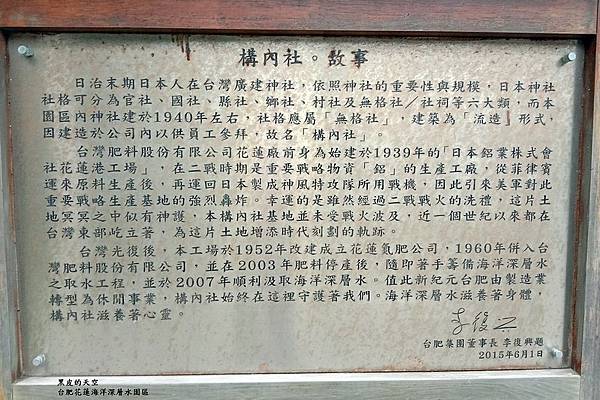 構內社。故事
日治末期日本人在台灣廣建神社，依照神社的重要性與規模，日本神社
社格可分為官社、國社、縣社、鄉社、村社及無格社／社祠等六大類，而本
園區內神社建於1940年左右，社格應屬「無格社」，建築為「流造」形式，
因建造於公司內以供員工參拜，故名「構內社」。
台灣肥料股份有限公司花蓮廠前身為始建於1939年的「日本鋁業株式會
社花蓮港工場」，在二戰時期是重要戰略物資「鋁」的生產工廠，從菲律賓
運來原料生產後，再運回日本製成神風特攻隊所用戰機，因此引來美軍對此
重要戰略生產基地的強烈轟炸。幸運的是雖然經過二戰戰火的洗禮，這片土
地冥冥之中似有神護，本構內社基地並未受戰火波及，近一個世紀以來都在
台灣東部屹立著，為這片土地增添時代刻劃的軌跡。
台灣光復後，本工場於1952年改建成立花蓮氮肥公司，1960年併入台
灣肥料股份有限公司，並在2003年肥料停產後，隨即著手籌備海洋深層水
之取水工程，並於2007年順利汲取海洋深層水。值此新紀元台肥由製造業
轉型為休閒事業，構內社始終在這裡守護著我們。海洋深層水滋養著身體，
構內社滋養著心靈。
李復興
台肥集團董事長 李復興題
2015年6月1日
黑皮的天空
台肥花蓮海洋深層水園區